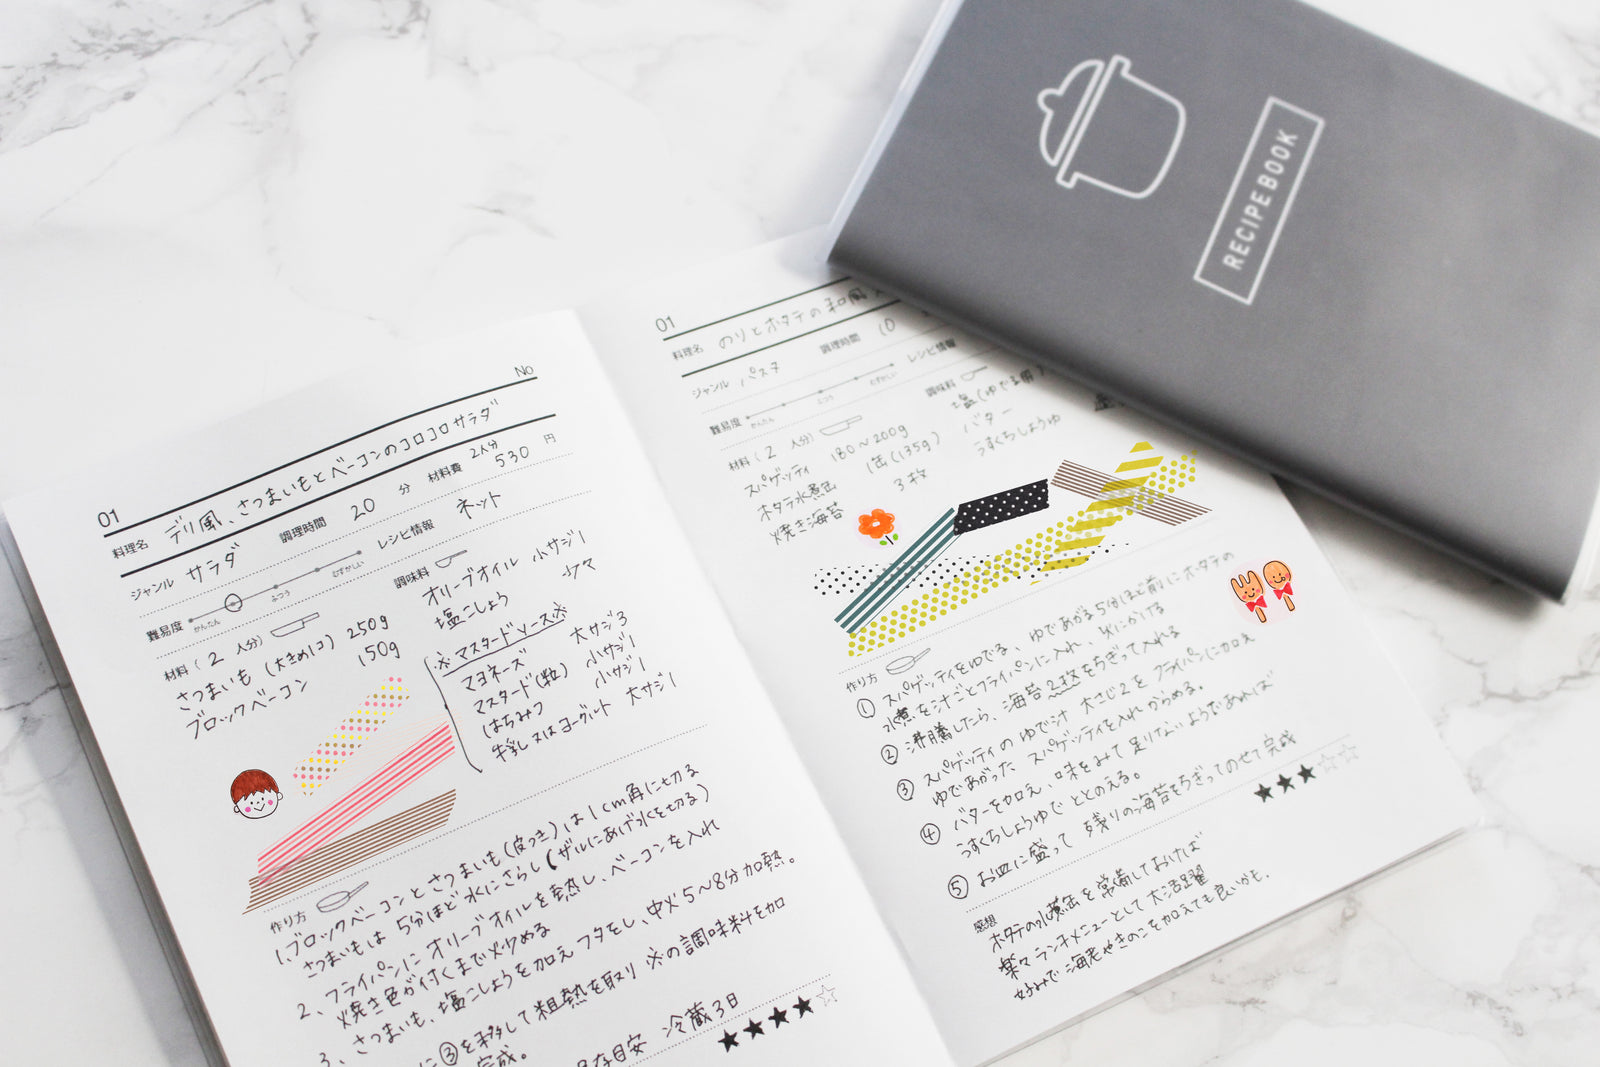 01
No
料理名 デリ風、さつまいもとベーコンのコロコロサラダ
ジャンル サラダ 調理時間 20 分 材料費 2人分 530 円
難易度 かんたん ふつう むずかしい レシピ情報 ネット
材料 ( 2 人分)
さつまいも (大きめ1コ) 250g
ブロックベーコン 150g
調味料
オリーブオイル 小サジ1
塩こしょう 少々
※マスタードソース※
マヨネーズ 大サジ3
マスタード(粒) 小サジ1
はちみつ 小サジ1
牛乳又はヨーグルト 大サジ1
作り方
1. ブロックベーコンとさつまいも(皮つき)は1cm角に切る
さつまいもは5分ほど水にさらし(ザルにあげ水を切る)
2、フライパンにオリーブオイルを熱し、ベーコンを入れ
焼き色が付くまで炒める
3、さつまいも、塩こしょうを加えフタをし、中火5〜8分加熱。
に③を移して粗熱を取り ※の調味料を加
完成。
存目安 冷蔵3日
★★★★☆
01
料理名 のりとホタテの和風
ジャンル パスタ 調理時間 10
難易度 かんたん ふつう むずかしい レシピ情報
材料 ( 2 人分)
スパゲッティ 180〜200g
ホタテ水煮缶 1缶(135g)
焼き海苔 3枚
調味料
塩(ゆでる用)
バター
うすくちしょうゆ
作り方
① スパゲッティをゆでる、ゆであがる5分ほど前にホタテの
水煮を汁ごとフライパンに入れ、火にかける
② 沸騰したら、海苔2枚をちぎって入れる
③ スパゲッティのゆで汁 大さじ2をフライパンに加え
ゆであがったスパゲッティを入れからめる。
④ バターを加え、味をみて足りないようであれば
うすくちしょうゆでととのえる。
⑤ お皿に盛って 残りの海苔をちぎってのせて完成
★★★☆☆
感想
ホタテの水煮缶を常備しておけば
楽々ランチメニューとして大活躍
好みで海老やきのこを加えても良いかも。
RECIPEBOOK